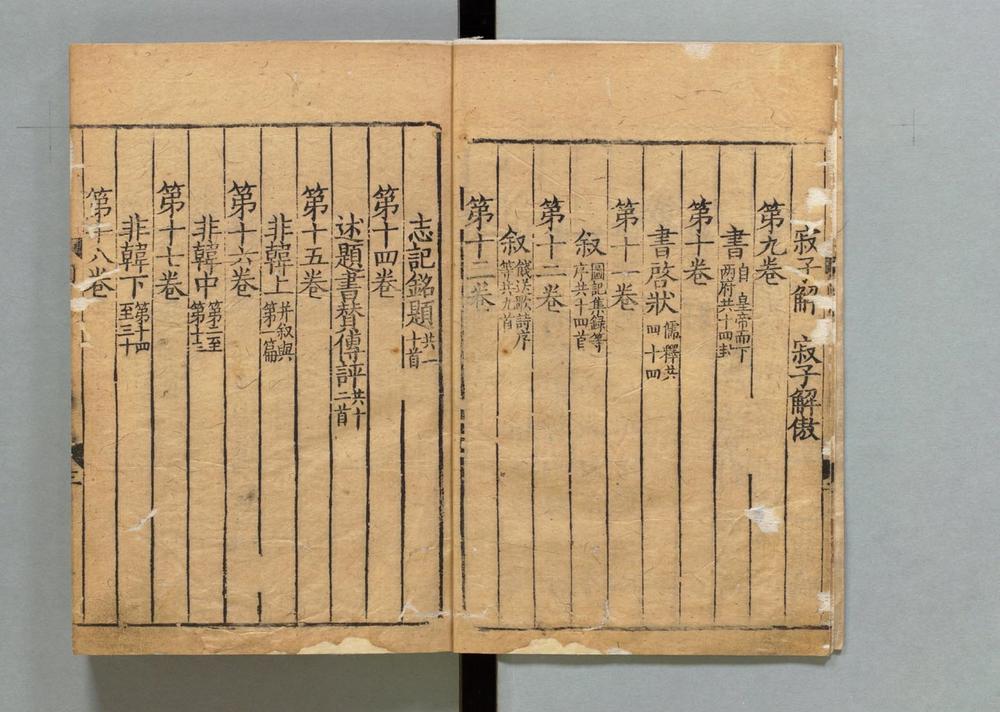 寂子解 寂子解傲
第九卷
書 自皇帝而下 両府共十四封
第十卷
書啓狀 儒釋共四十四
第十一卷
叙 圖記集錄等序共十四首
第十二卷
叙 餞送歌詩序等共九首
第十三卷
志記銘題 共一十首
第十四卷
述題書贊傳評 共十二首
第十五卷
非韓上 并叙與第一篇
第十六卷
非韓中 第二至第十三
第十七卷
非韓下 第十四至三十
第十八卷